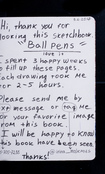 Hi, thank you for
looking this sketchbook
"Ball pens"
I spent 3 happy weeks
to fill up these pages.
Each drawing took me
for 2-5 hours.
Please send me by
message or tag me
for your favorite image
from this book.
I will be happy to know
this book have been seen
Thanks!